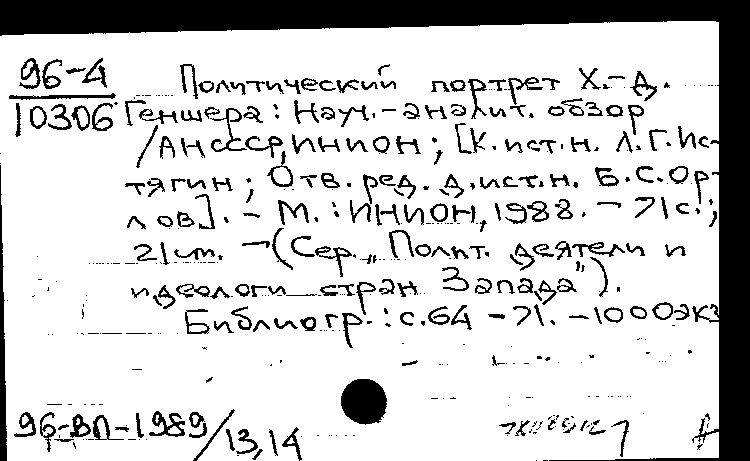 96-4
10306
Политический портрет Х.-Д.
Геншера : Науч.-аналит. обзор
/АН СССР, ИНИОН ; [К. ист. н. Л. Г. Ис-
тягин ; Отв. ред. д. ист. н. Б. С. Ор-
лов]. - М. : ИНИОН, 1988. - 71 с. ;
21 см. - (Сер. „Полит. деятели и
идеологи стран Запада").
Библиогр. : с. 64 - 71. - 1000 экз
96-ВП-1989/13,14